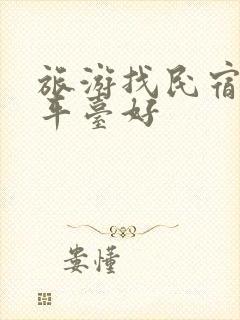 旅游找民宿
平臺好
娄懂